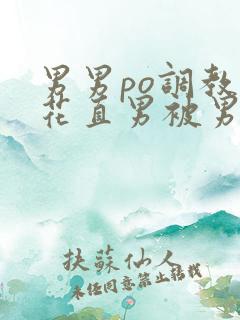 男男po調教
花直男被男
扶蘇仙人
未经同意禁止转载